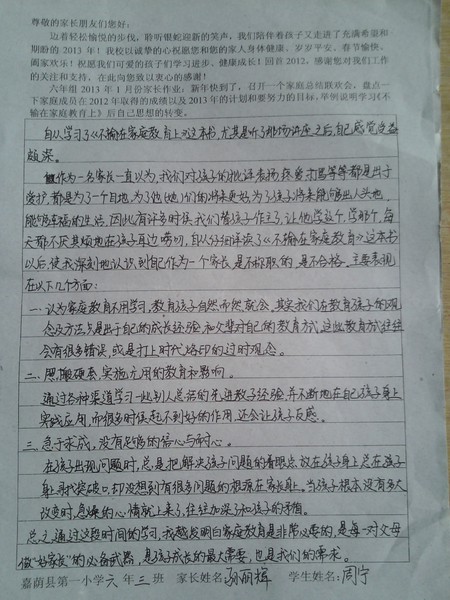 尊敬的家长朋友们您好：
迈着轻松愉悦的步伐，聆听银蛇迎新的笑声，我们陪伴着孩子又走进了充满希望和
期盼的 2013 年！我校以诚挚的心祝愿您和您的家人身体健康、岁岁平安、春节愉快、
阖家欢乐！祝愿我们可爱的孩子们学习进步、健康成长！回首 2012，感谢您对我们工作
的关注和支持，在此向您致以衷心的感谢！
六年组 2013 年 1 月份家长作业：新年快到了，召开一个家庭总结联欢会，盘点一
下家庭成员在 2012 年取得的成绩以及 2013 年的计划和要努力的目标，举例说明学习《不
输在家庭教育上》后自己思想的转变。
自从学习了《不输在家庭教育上》这本书，尤其是听了那场讲座之后，自己感觉受益
颇深。
做作为一名家长一直以为，我们对孩子的批评表扬、疼爱、打骂等等都是出于
爱护，都是为了一个目地，为了他(她)们的将来更好，为了孩子将来能够出人头地，
能够幸福的生活，因此有许多时侯，我们替孩子作主了，让他学这个，学那个，每
天都不厌其烦地在孩子耳边唠叨，自从仔细详读了《不输在家庭教育》这本书
以后，使我深刻地认识到自己作为一个家长，是不称职的，是不合格，主要表现
在以下几个方面：
一.认为家庭教育不用学习，教育孩子自然而然就会，其实我们在教育孩子的观
念及方法只是出于自己的成长经验和父辈对自己的教育方式，这些教育方式往往
会有很多错误，或是打上时代烙印的过时观念。
二.照搬硬套，实施无用的教育和影响。
通过各种渠道学习一些别人总结的先进教子经验，并不断地在自己孩子身上
实践应用，而很多时侯起不到好的作用，还会让孩子反感。
三.急于求成，没有足够的信心与耐心。
在孩子出现问题时，总是把解决孩子问题的着眼点放在孩子身上，总在孩子
身上寻找突破口，却没想到有很多问题的根源在家长身上。当孩子根本没有多大
改变时，急躁的心情就上来了，往往加深了和孩子的矛盾。
总之，通过这段时间的学习，我越发明白家庭教育是非常必要的，是每一对父母
做“好家长”的必备武器，是孩子成长的最大需要，也是我们的需求。
嘉荫县第一小学六 年 三 班 家长姓名：孙丽辉 学生姓名：周宁